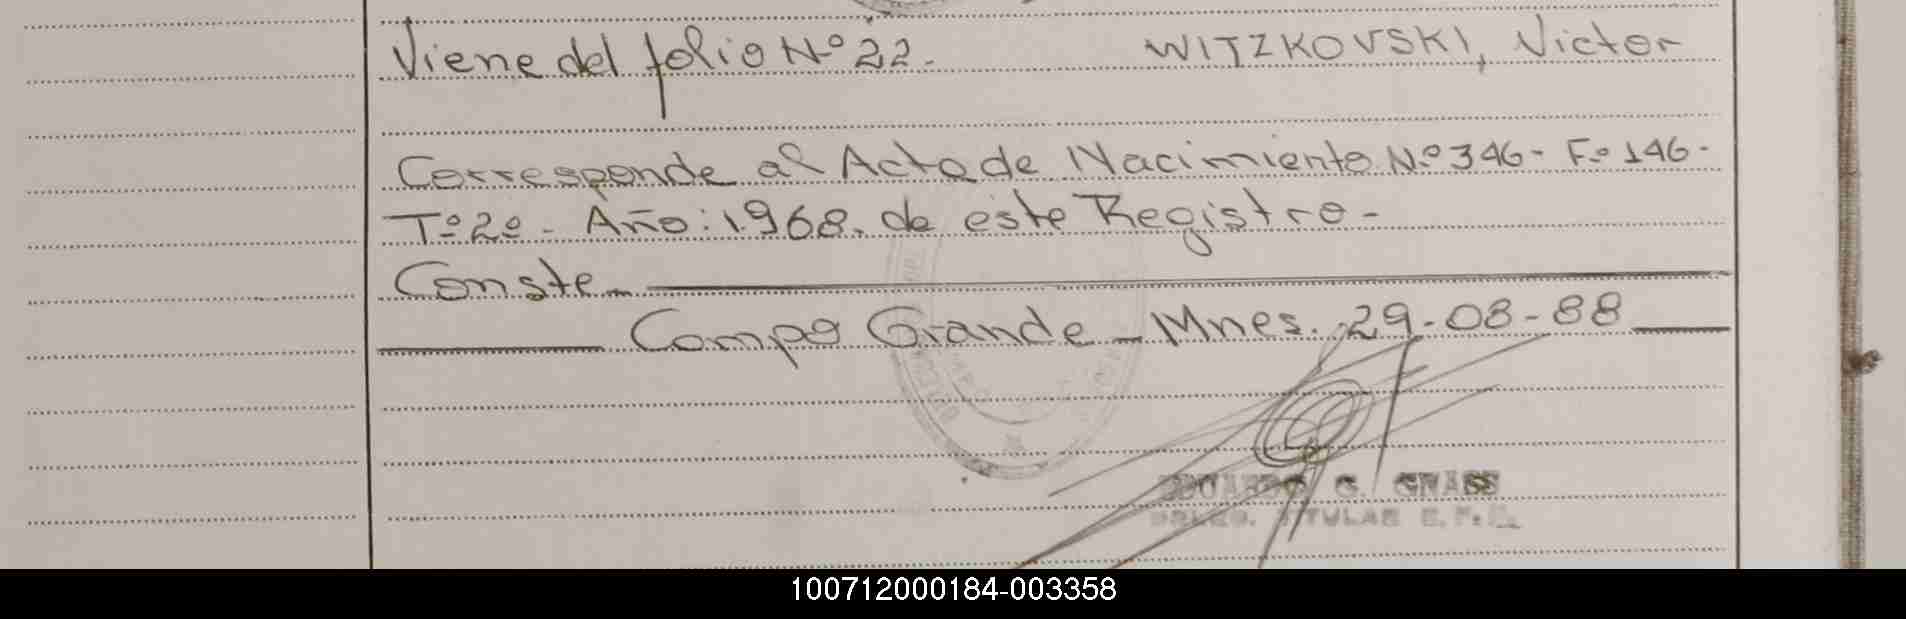 Viene del folio N.º 22. WITZKOVSKI, Victor
Corresponde al Acta de Nacimiento N.º 346- F.º 146-
Tº 2º - Año: 1.968. de este Registro-
Conste -
Campo Grande - Mnes. 29-08-88
EDUARDO G.
TITULAR
100712000184-003358